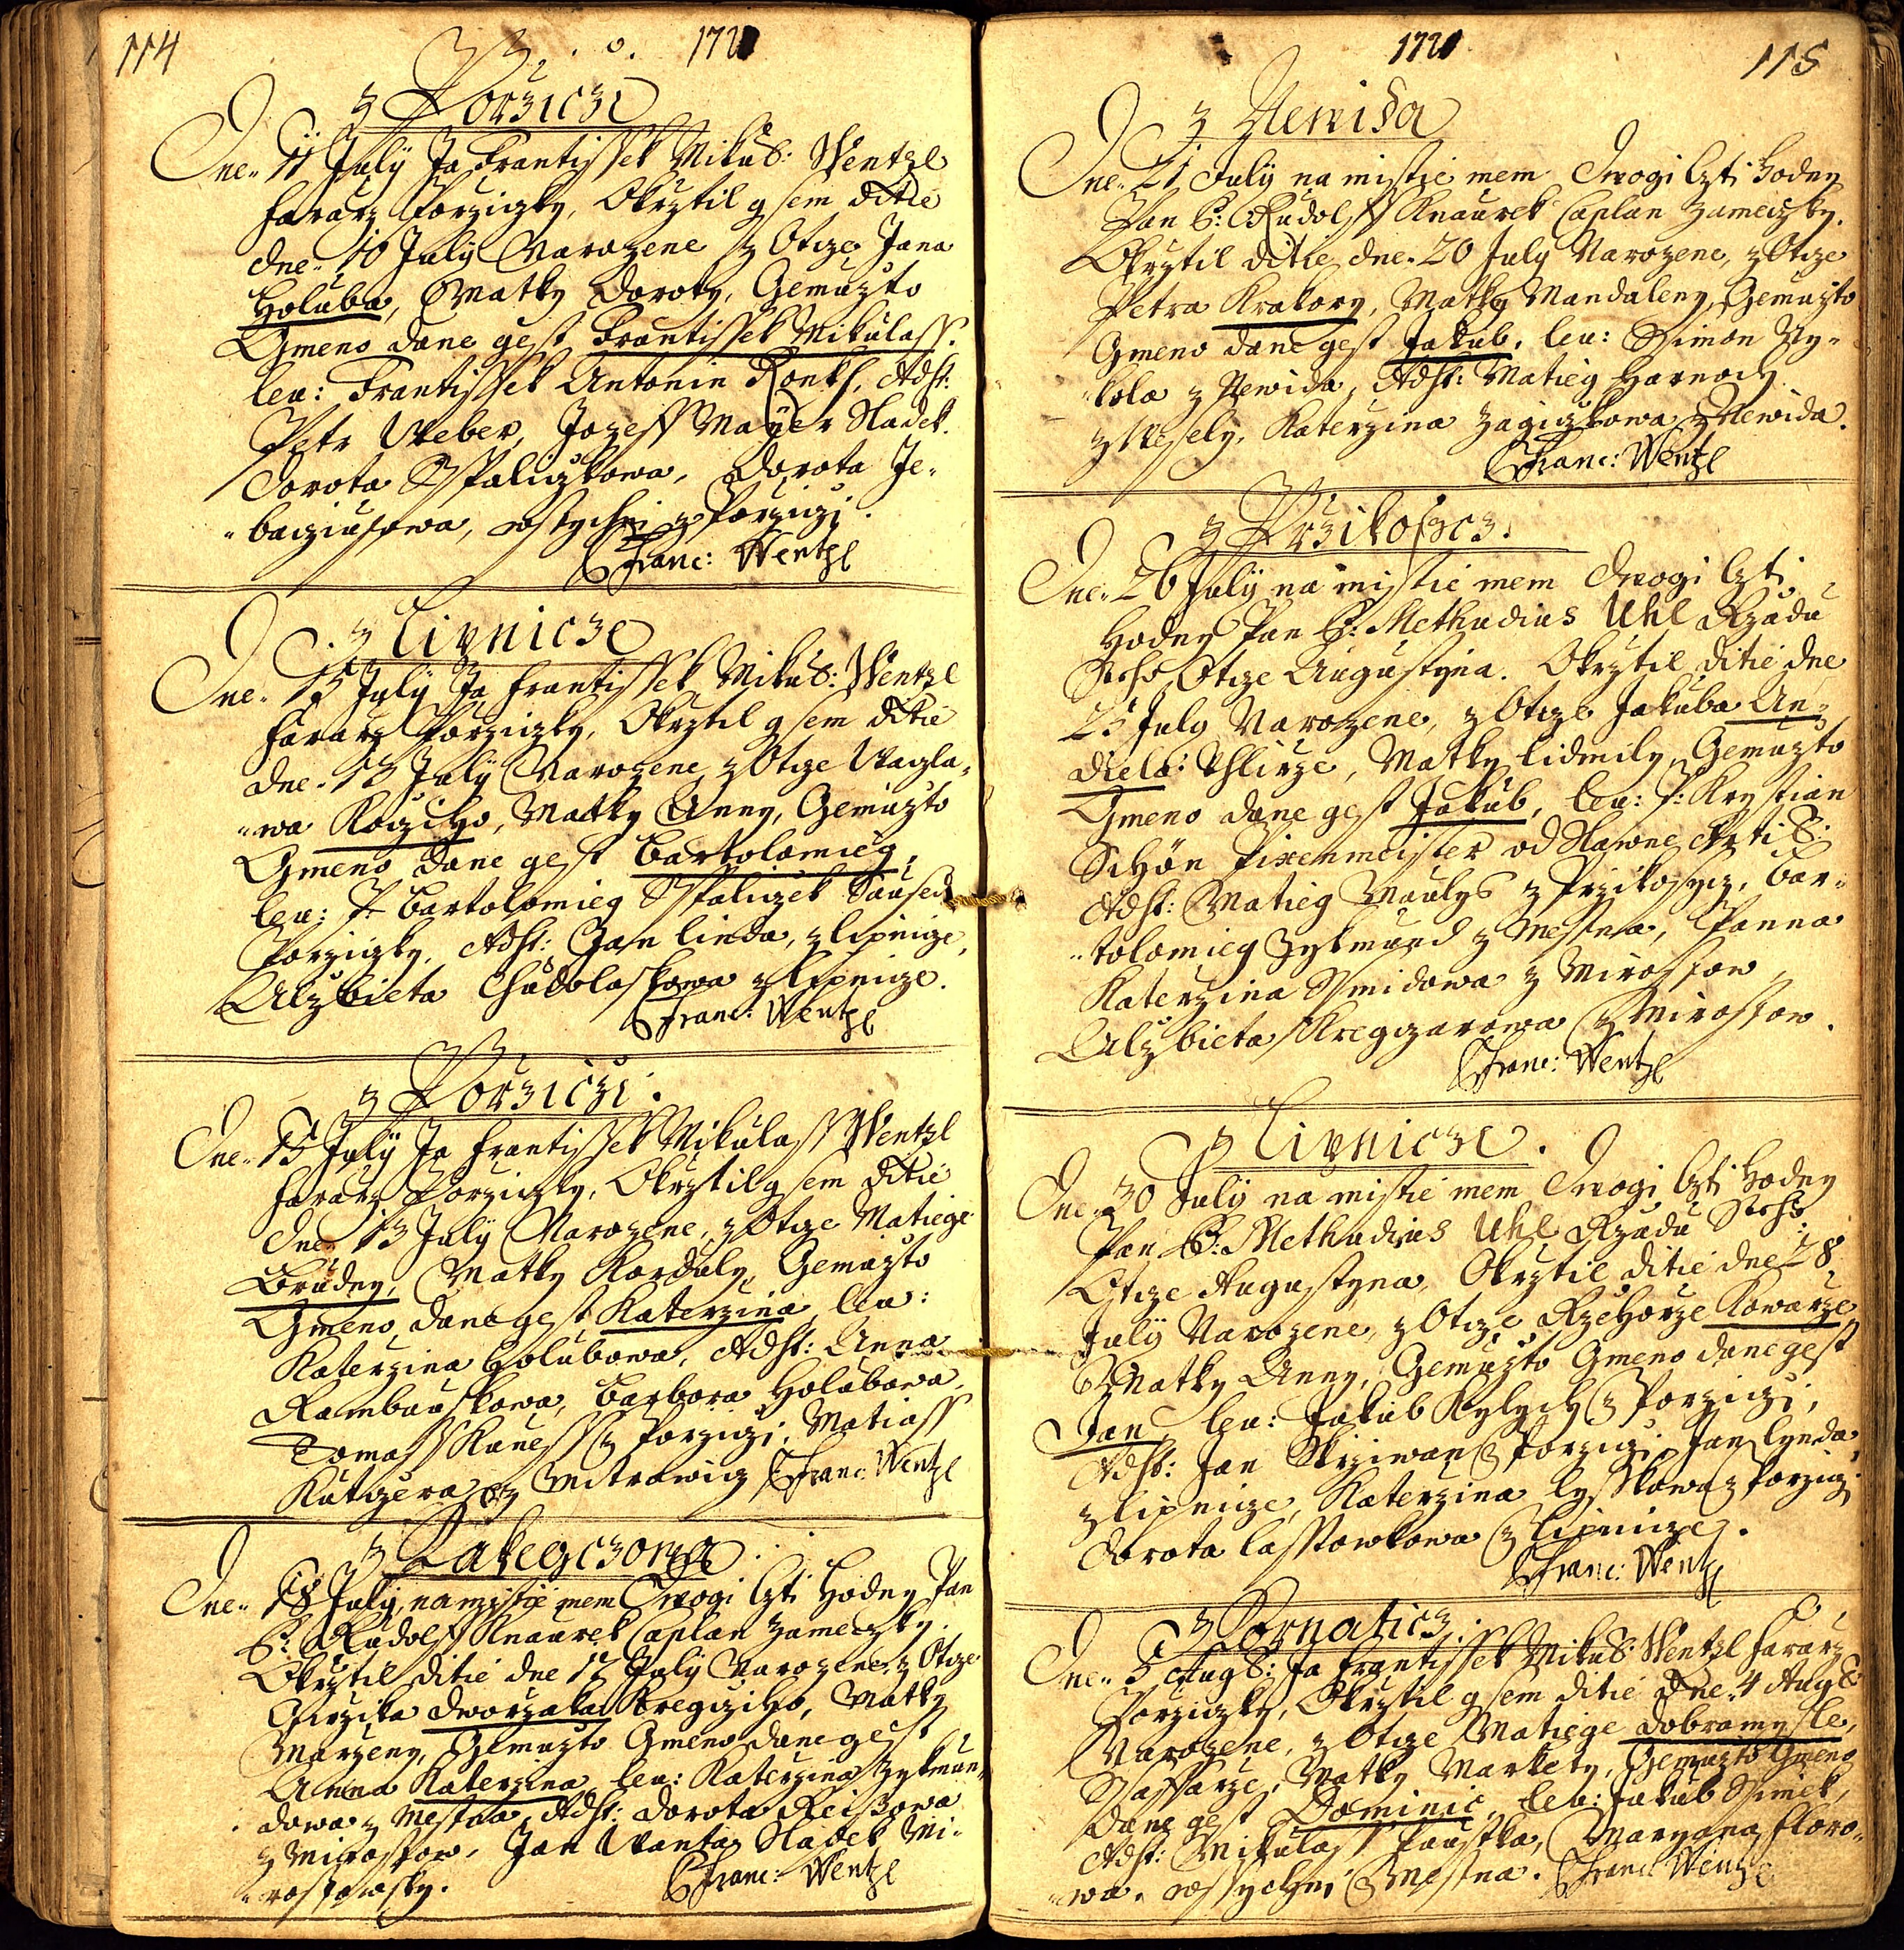 114
1721
z Porziczi
Dne 11 July Ja Frantissek Mikus: Wentzl
Fararz Porziczky, Okrztil gsem ditie
dne 10 July Narozene z Otcze Jana
Holuba, Matky Doroty, Gemuzto
Gmeno dane gest Frantissek Mikulass.
leu: Frantissek Antonin Adst:
Petr Weber, Jozeff Mayer Sladek.
Dorota Sspaliczkowa, Dorota Je-
wssychni z Porziczi.
Franc: Wentzl
z Lipnicze
Dne 15 July Ja Frantissek Mikus: Wentzl
Fararz Porziczky, Okrztil gsem ditie
dne 13 July Narozene z Otcze Waczla-
wa Matky Anny, Gemuzto
Gmeno dane gest Bartolomieg,
leu: P: Bartolomieg Sspaliczek Saused
Porziczky, Adst: Jan Linda, z Lipnicze,
Alzbieta z Lipnicze.
Franc: Wentzl
z Porziczi.
Dne 15 July Ja Frantissek Mikulass Wentzl
Fararz Porziczky, Okrztil gsem ditie
dne 13 July Narozene, z Otcze Matiege
Brudny, Matky Korduly, Gemuzto
Gmeno dane gest Katerzina, leu:
Katerzina Holubowa, Adst: Anna
Rambauskowa, Barbora Holubowa,
Tomass z Porziczi, Matiass
Kuczera z Mitrowicz Franc: Wentzl
z
Dne 18 July, na mistie mem Dwogi Czti Hodny Pan
P: Rudolff Knaurek Caplan Zameczky.
Okrztil ditie dne 17 July Narozene, z Otcze
Girzika Dworzaka Kregcziho, Matky
Marzeny, Gemuzto Gmeno dane gest
Anna Katerzina, leu: Katerzina Zykmun-
dowa z Mestna, Adst: Dorota Reissowa
z Mirossow, Jan Wanta, Sladek Mi-
rossowsky. Franc: Wentzl
1721
115
z Newida
Dne 21 July na mistie mem Dwogi Czti Hodny
Pan P: Rudolff Knaurek Caplan Zameczky.
Okrztil ditie dne 20 July Narozene, z Otcze
Petra Krakory, Matky Mandaleny, Gemuzto
Gmeno dane gest Jakub, leu: Ssimon Ny-
kola z Newida, Adst: Matieg Harnoch
z Wesely, Katerzina Zagiczkowa z Newida.
Franc: Wentzl
z Przikosicz.
Dne 26 July na mistie mem Dwogi Czti
Hodny Pan P: Methudius Uhl Rzadu
Stho Otcze Augustyna. Okrztil ditie dne
25 July Narozene, z Otcze Jakuba An-
diela: Uhlirze, Matky Lidmily, Gemuzto
Gmeno dane gest Jakub, leu: P: Krystian
Schön Pixenmeister od Slawne Arti:
Adst: Matieg Maulys z Przikosycz, Bar-
tolomieg Zykmund z Mestna, Panna
Katerzina Ssmidowa z Mirossow,
Alzbieta Kregczarowa z Mirossow.
Franc: Wentzl
z Lipnicze.
Dne 30 July na mistie mem Dwogi Czti Hodny
Pan P: Methudius Uhl Rzadu Stho
Otcze Augustyna, Okrztil ditie dne 28
July Narozene, z Otcze Rzehorze Kowarze,
Matky Anny, Gemuzto Gmeno dane gest
Jan leu: Jakub z Porziczi,
Adst: Jan Skrziwan z Porziczi, Jan Lynda
z Lipnicze, Katerzina z Porzicz
Dorota Lasstowkowa z Lipnicze.
Franc: Wentzl
z Kornaticz.
Dne 5 Aug: Ja Frantissek Mikus: Wentzl Fararz
Porziczky, Okrztil gsem ditie dne 4 Aug
Narozene, z Otcze Matiege Dobromysle,
Ssaffarze, Matky Markety, Gemuzto Gmeno
dane gest Dominic, leu: Jakub Ssimek,
Adst: Mikulass Faustka, Maryana Floro-
wa. wssychni z Mestna. Franc: Wentzl